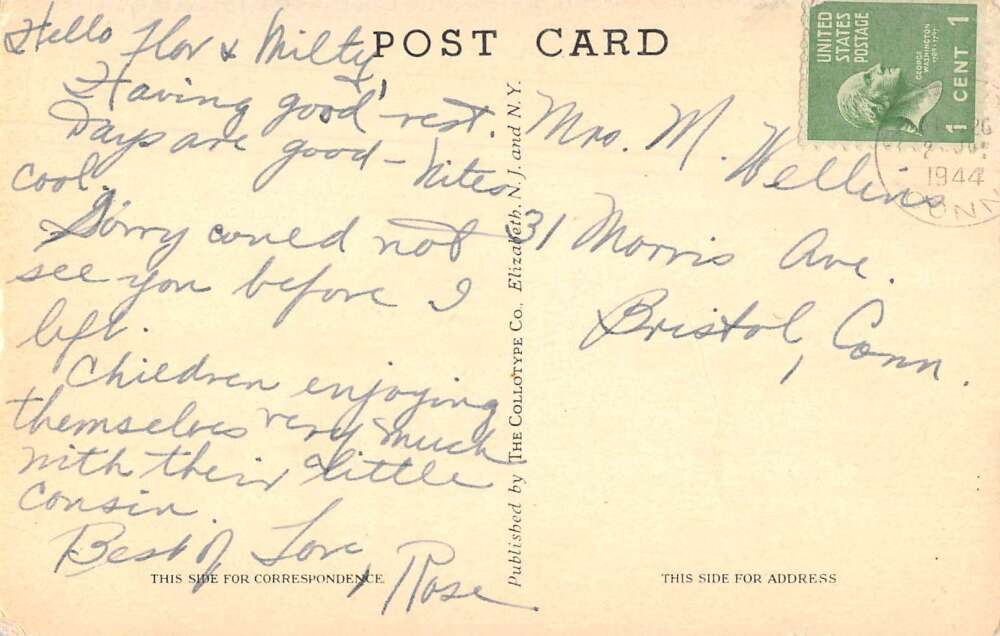 POST CARD
Hello Flor & Milty,
Having good rest.
Days are good - Nites
cool.
Sorry could not
see you before I
left.
Children enjoying
themselves very much
with their little
cousin.
Best of Love,
Rose
THIS SIDE FOR CORRESPONDENCE
Published by THE COLLOTYPE CO., Elizabeth, N. J. and N. Y.
UNITED
STATES
POSTAGE
GEORGE
WASHINGTON
1 CENT 1
1944
CONN
Mrs. M. Wellins
31 Morris Ave.
Bristol, Conn.
THIS SIDE FOR ADDRESS